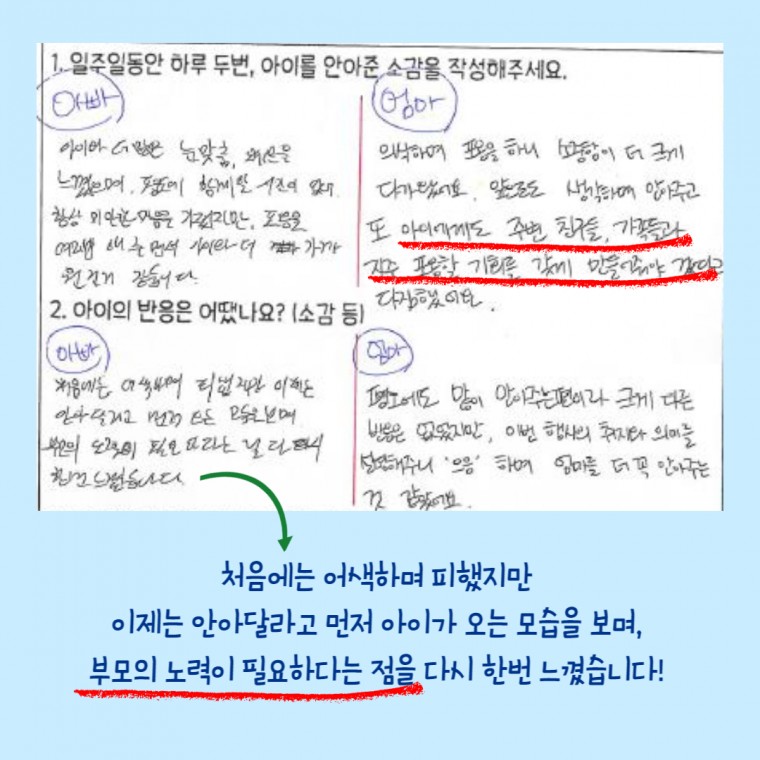 1. 일주일동안 하루 두번, 아이를 안아준 소감을 작성해주세요.
아빠
아이와 더 많은 눈맞춤, 체온을
느꼈으며, 함께할 시간이 없어
항상 미안한 마음을 가졌지만, 포옹을
해주면서 아이와 더
같습니다.
엄마
의식하며 포옹을 하니 소중함이 더 크게
다가왔어요. 앞으로도 생각하며 안아주고
또 아이에게도 주변 친구들, 가족들과
자주 포옹할 기회를 갖게 만들어줘야 겠다고
다짐했어요.
2. 아이의 반응은 어땠나요? (소감 등)
아빠
처음에는 어색하며 피했지만 이제는
안아달라고 먼저 오는 모습을 보며
부모의 노력이 필요 다시
한번 느꼈습니다.
엄마
평소에도 많이 안아주는편이라 크게 다른
반응은 없었지만, 이번 행사의 취지와 의미를
설명해주니 '으응' 하며 엄마를 더 꼭 안아주는
것 같았어요.
처음에는 어색하며 피했지만
이제는 안아달라고 먼저 아이가 오는 모습을 보며,
부모의 노력이 필요하다는 점을 다시 한번 느꼈습니다!